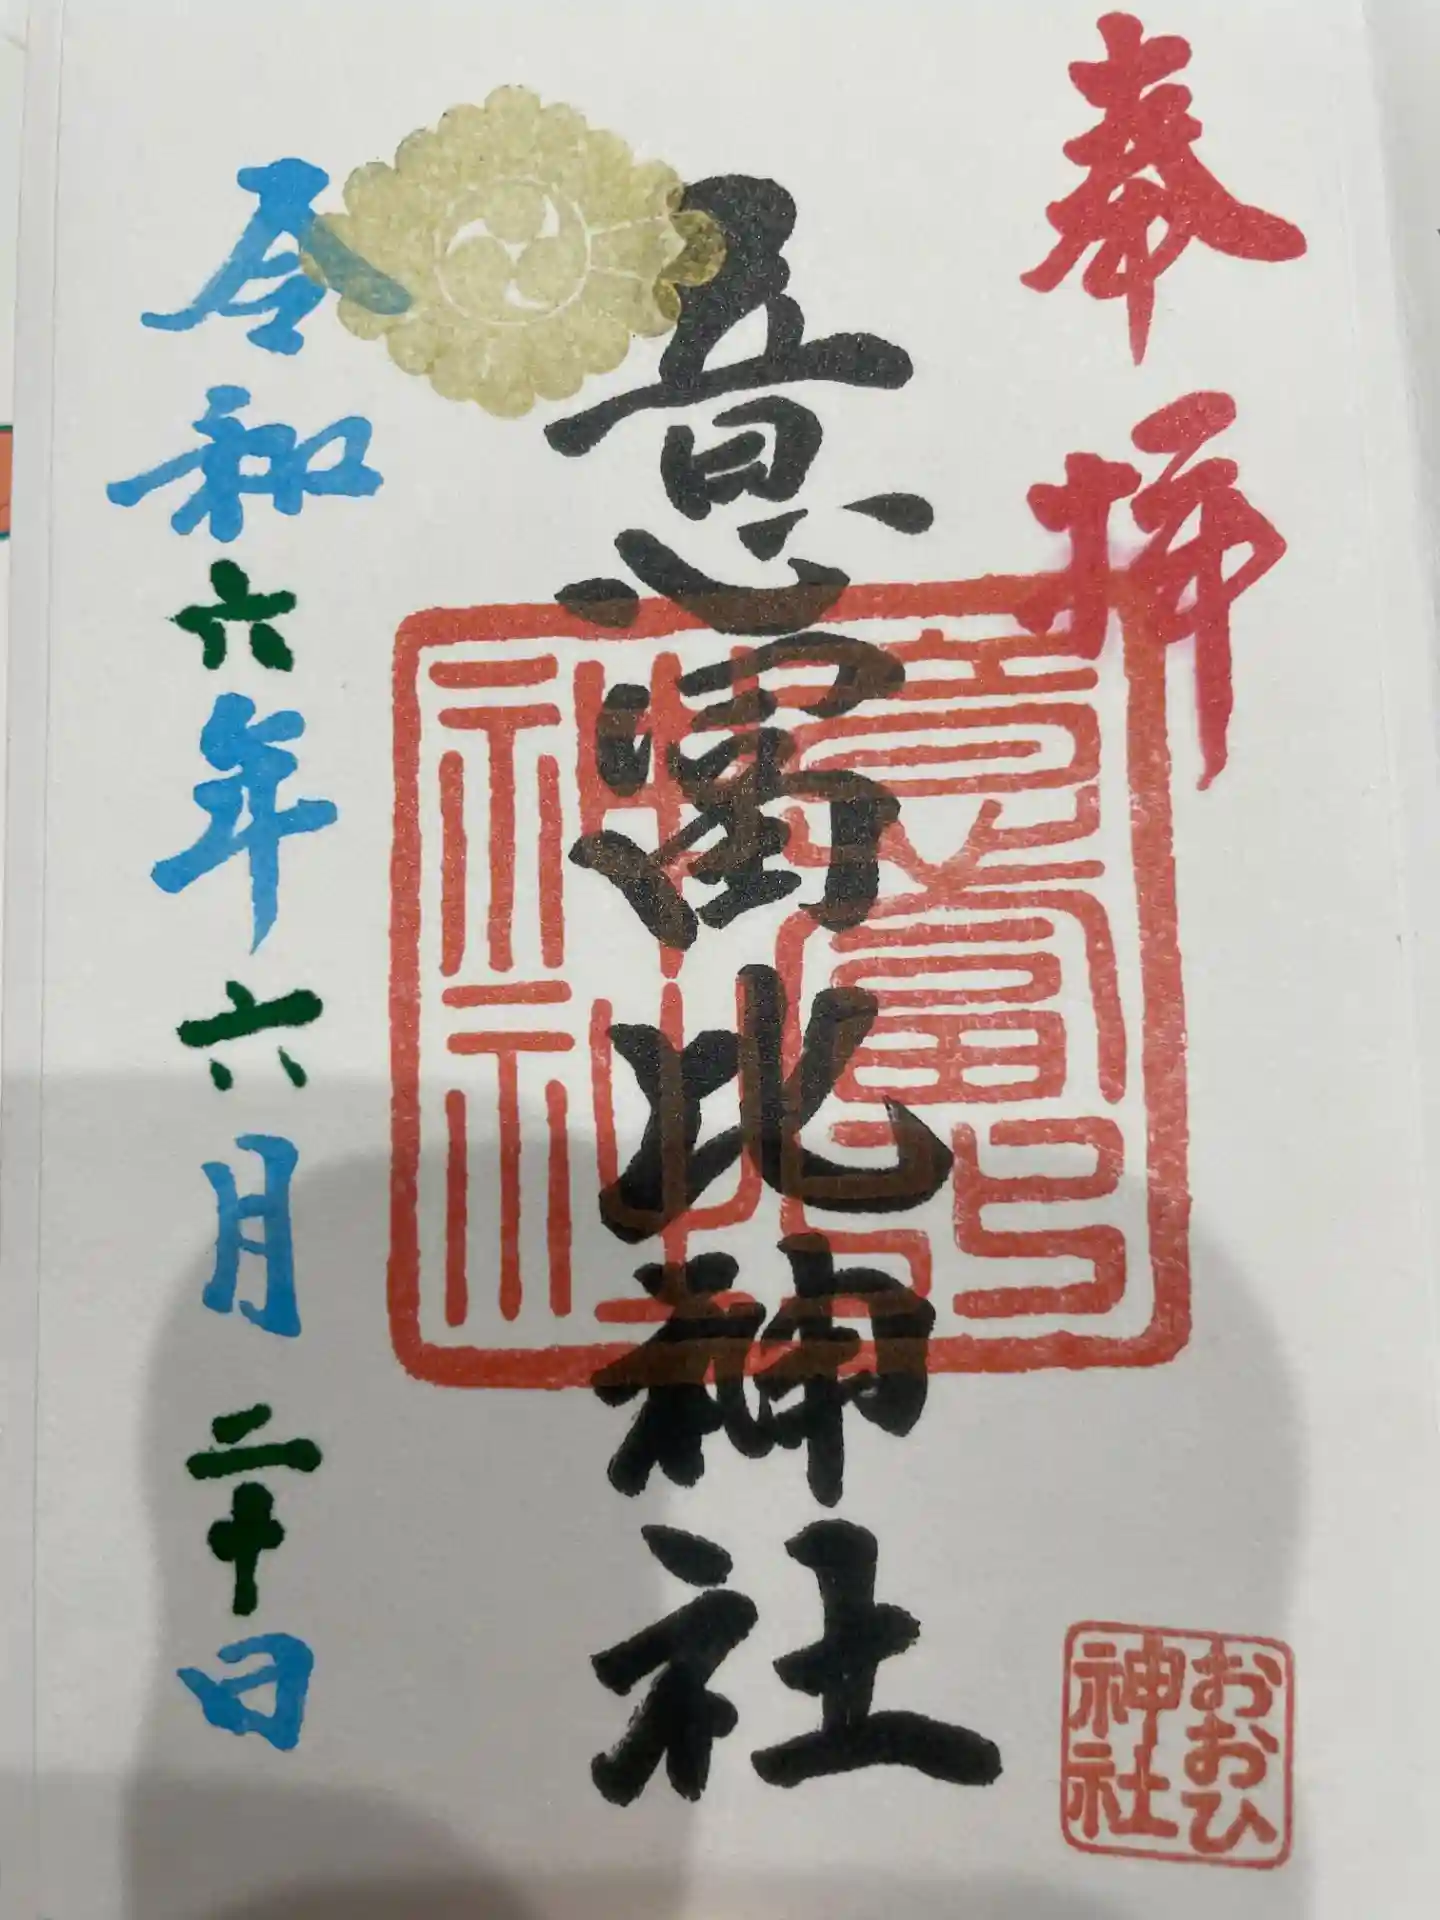 奉拝
意富比神社
意富比神社
おおひ
神社
令和六年六月二十日